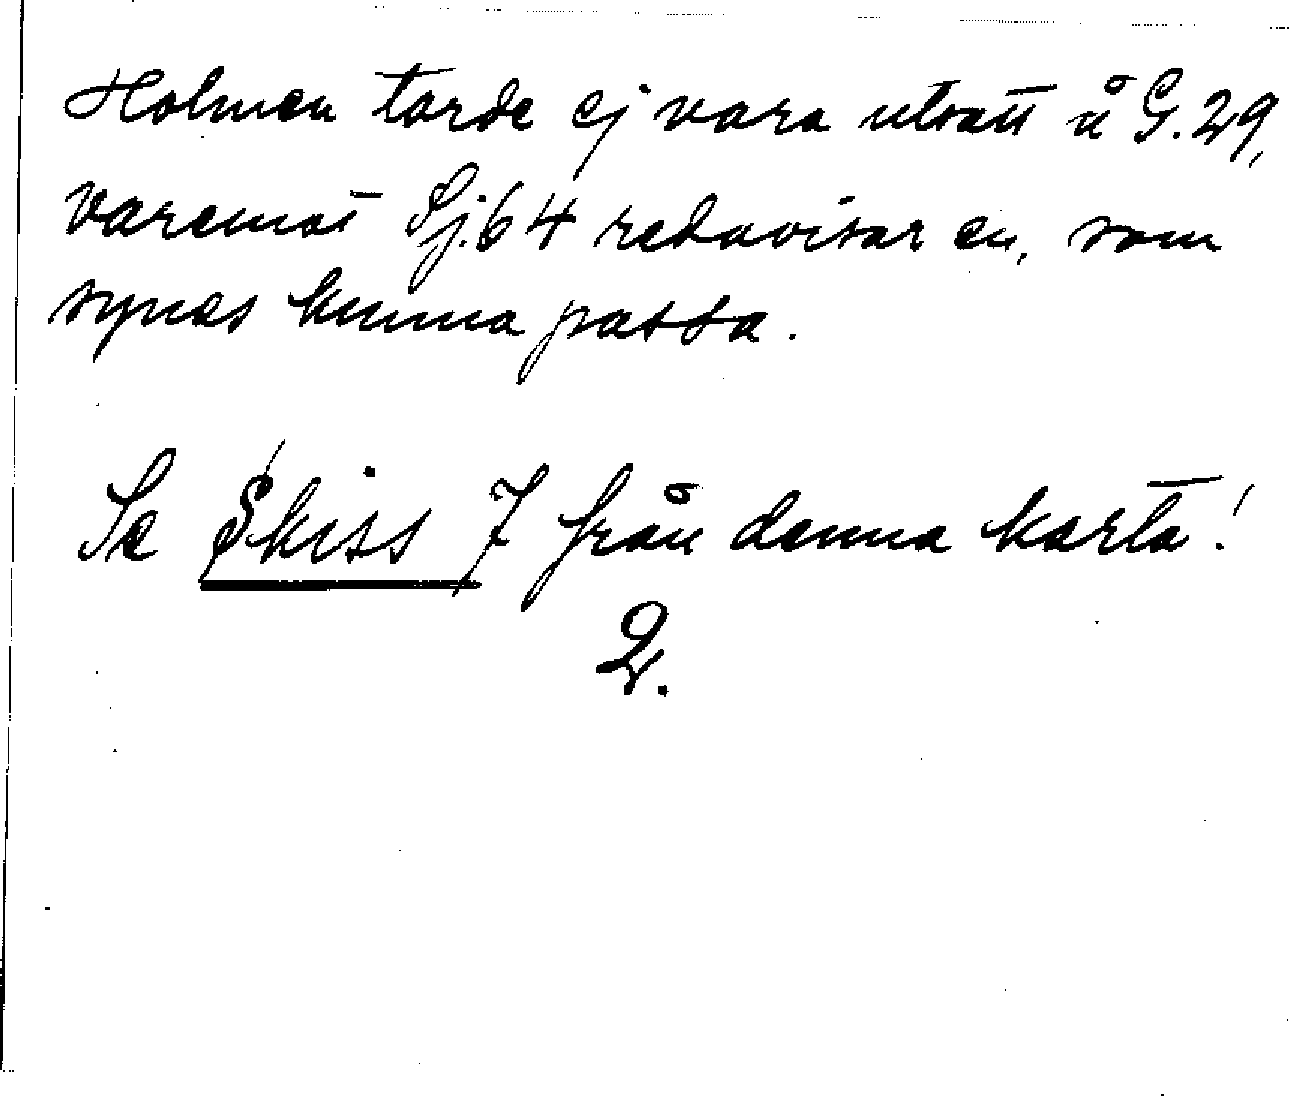 Holmen torde ej vara utsatt å G. 29,
varemot Sj. 64 redovisar en, som
synes kunna passa.
Se Skiss 7 från denna karta!
2.